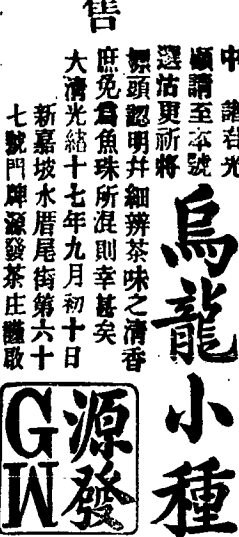 售
中諸君光
顧請至本號
選沽更祈將
標頭認明幷細辨茶味之清香
庶免爲魚珠所混則幸甚矣
大清光緒十七年九月初十日
新嘉坡水厝尾街第六十
七號門牌源發茶庄謹啟
烏龍小種
源發
GW